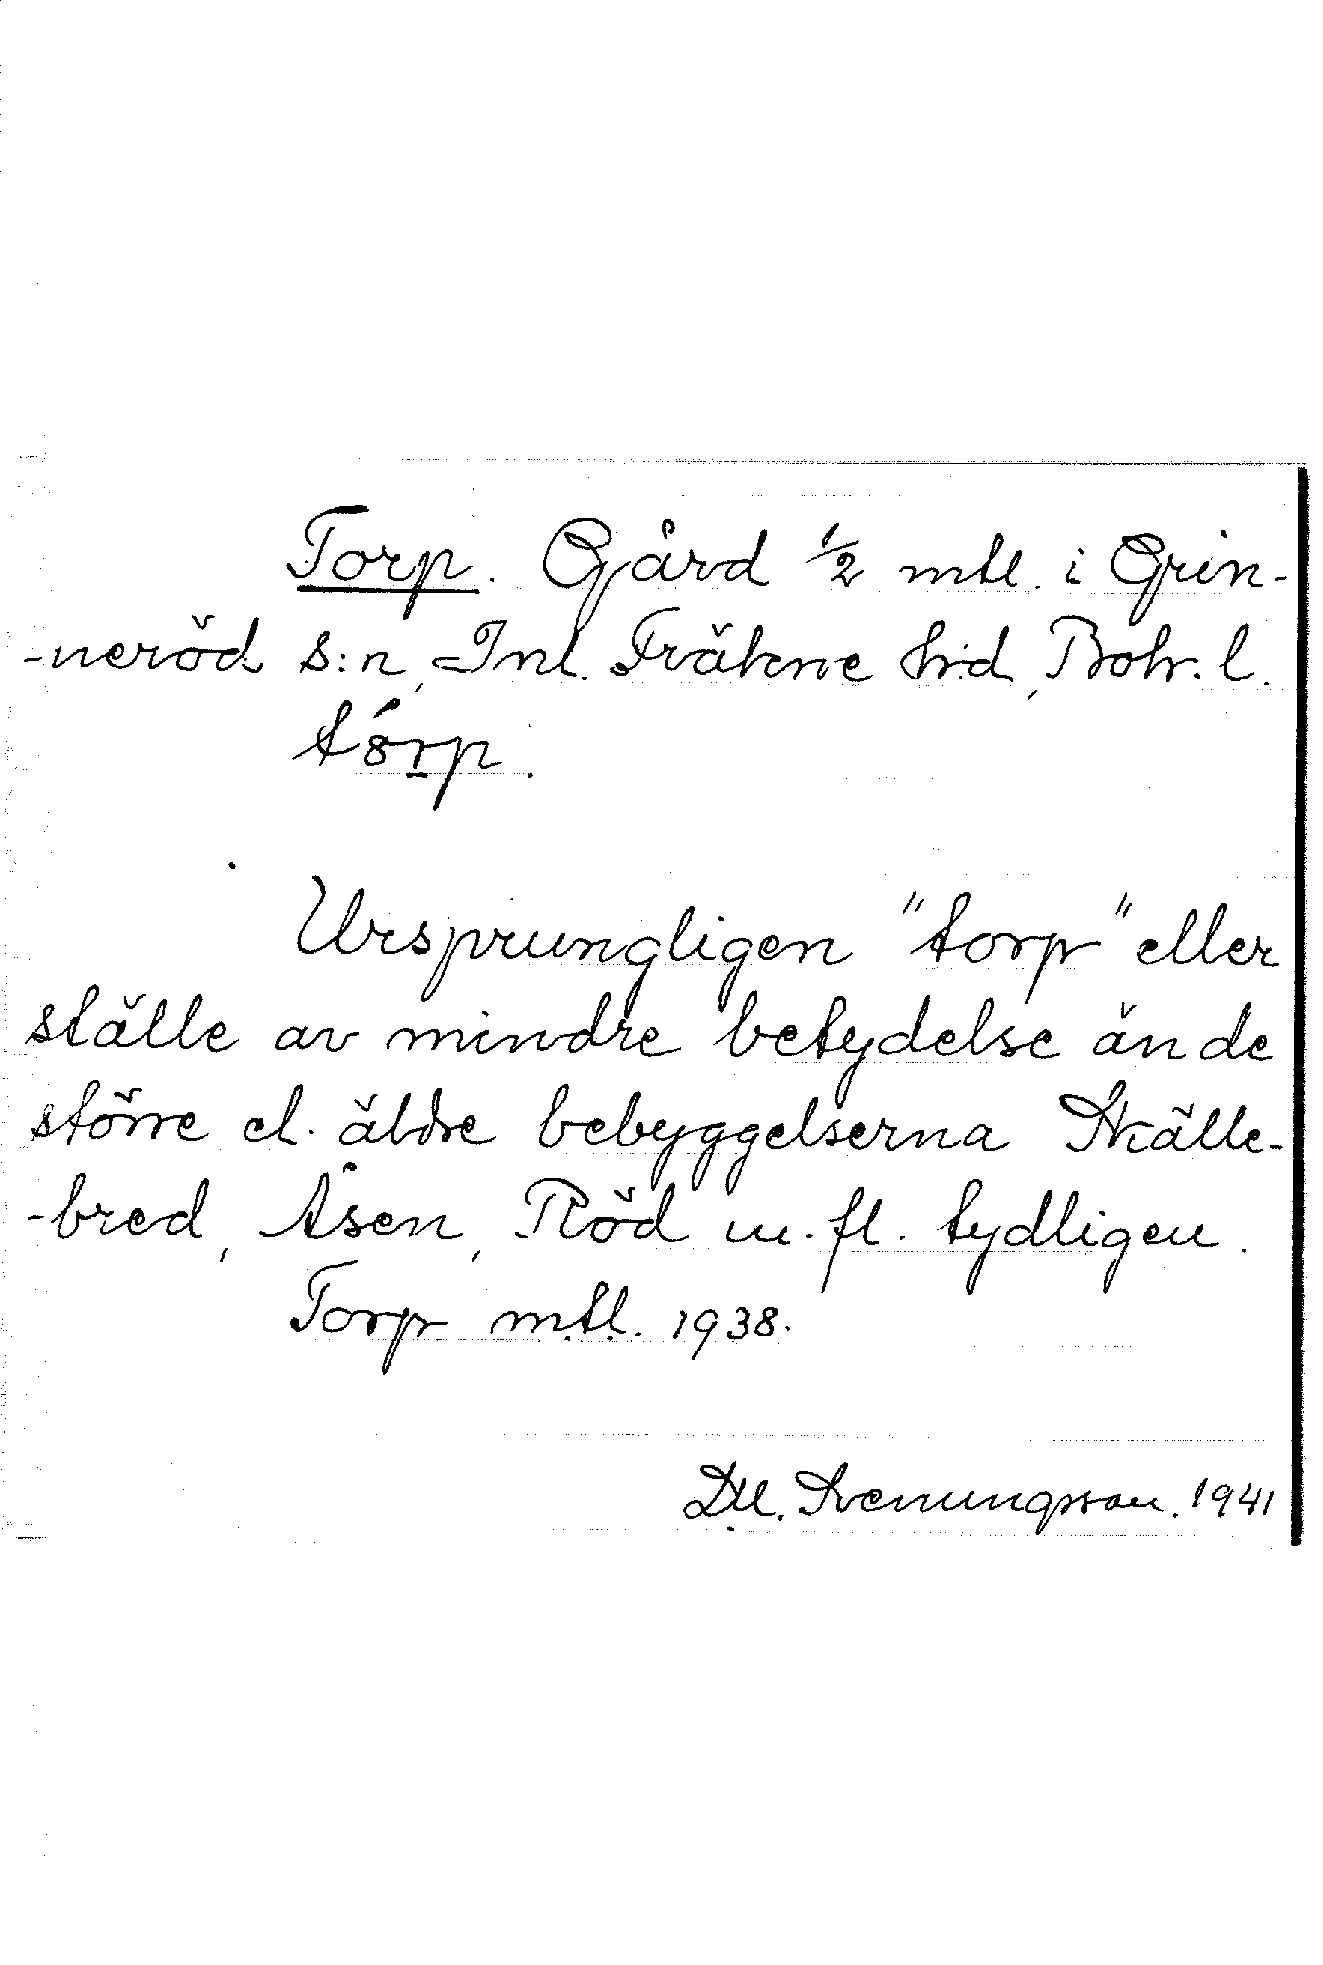 Torp. Gård 1/2 mtl. i Grin-
-neröd s:n, Inl. Fräkne h:d, Boh. l.
Ursprungligen "torp" eller
ställe av mindre betydelse än de
större el. äldre bebyggelserna Skälle-
-bred, Åsen, Röd m. fl. tydligen.
Torp mtl. 1938.
Svenungsson. 1941